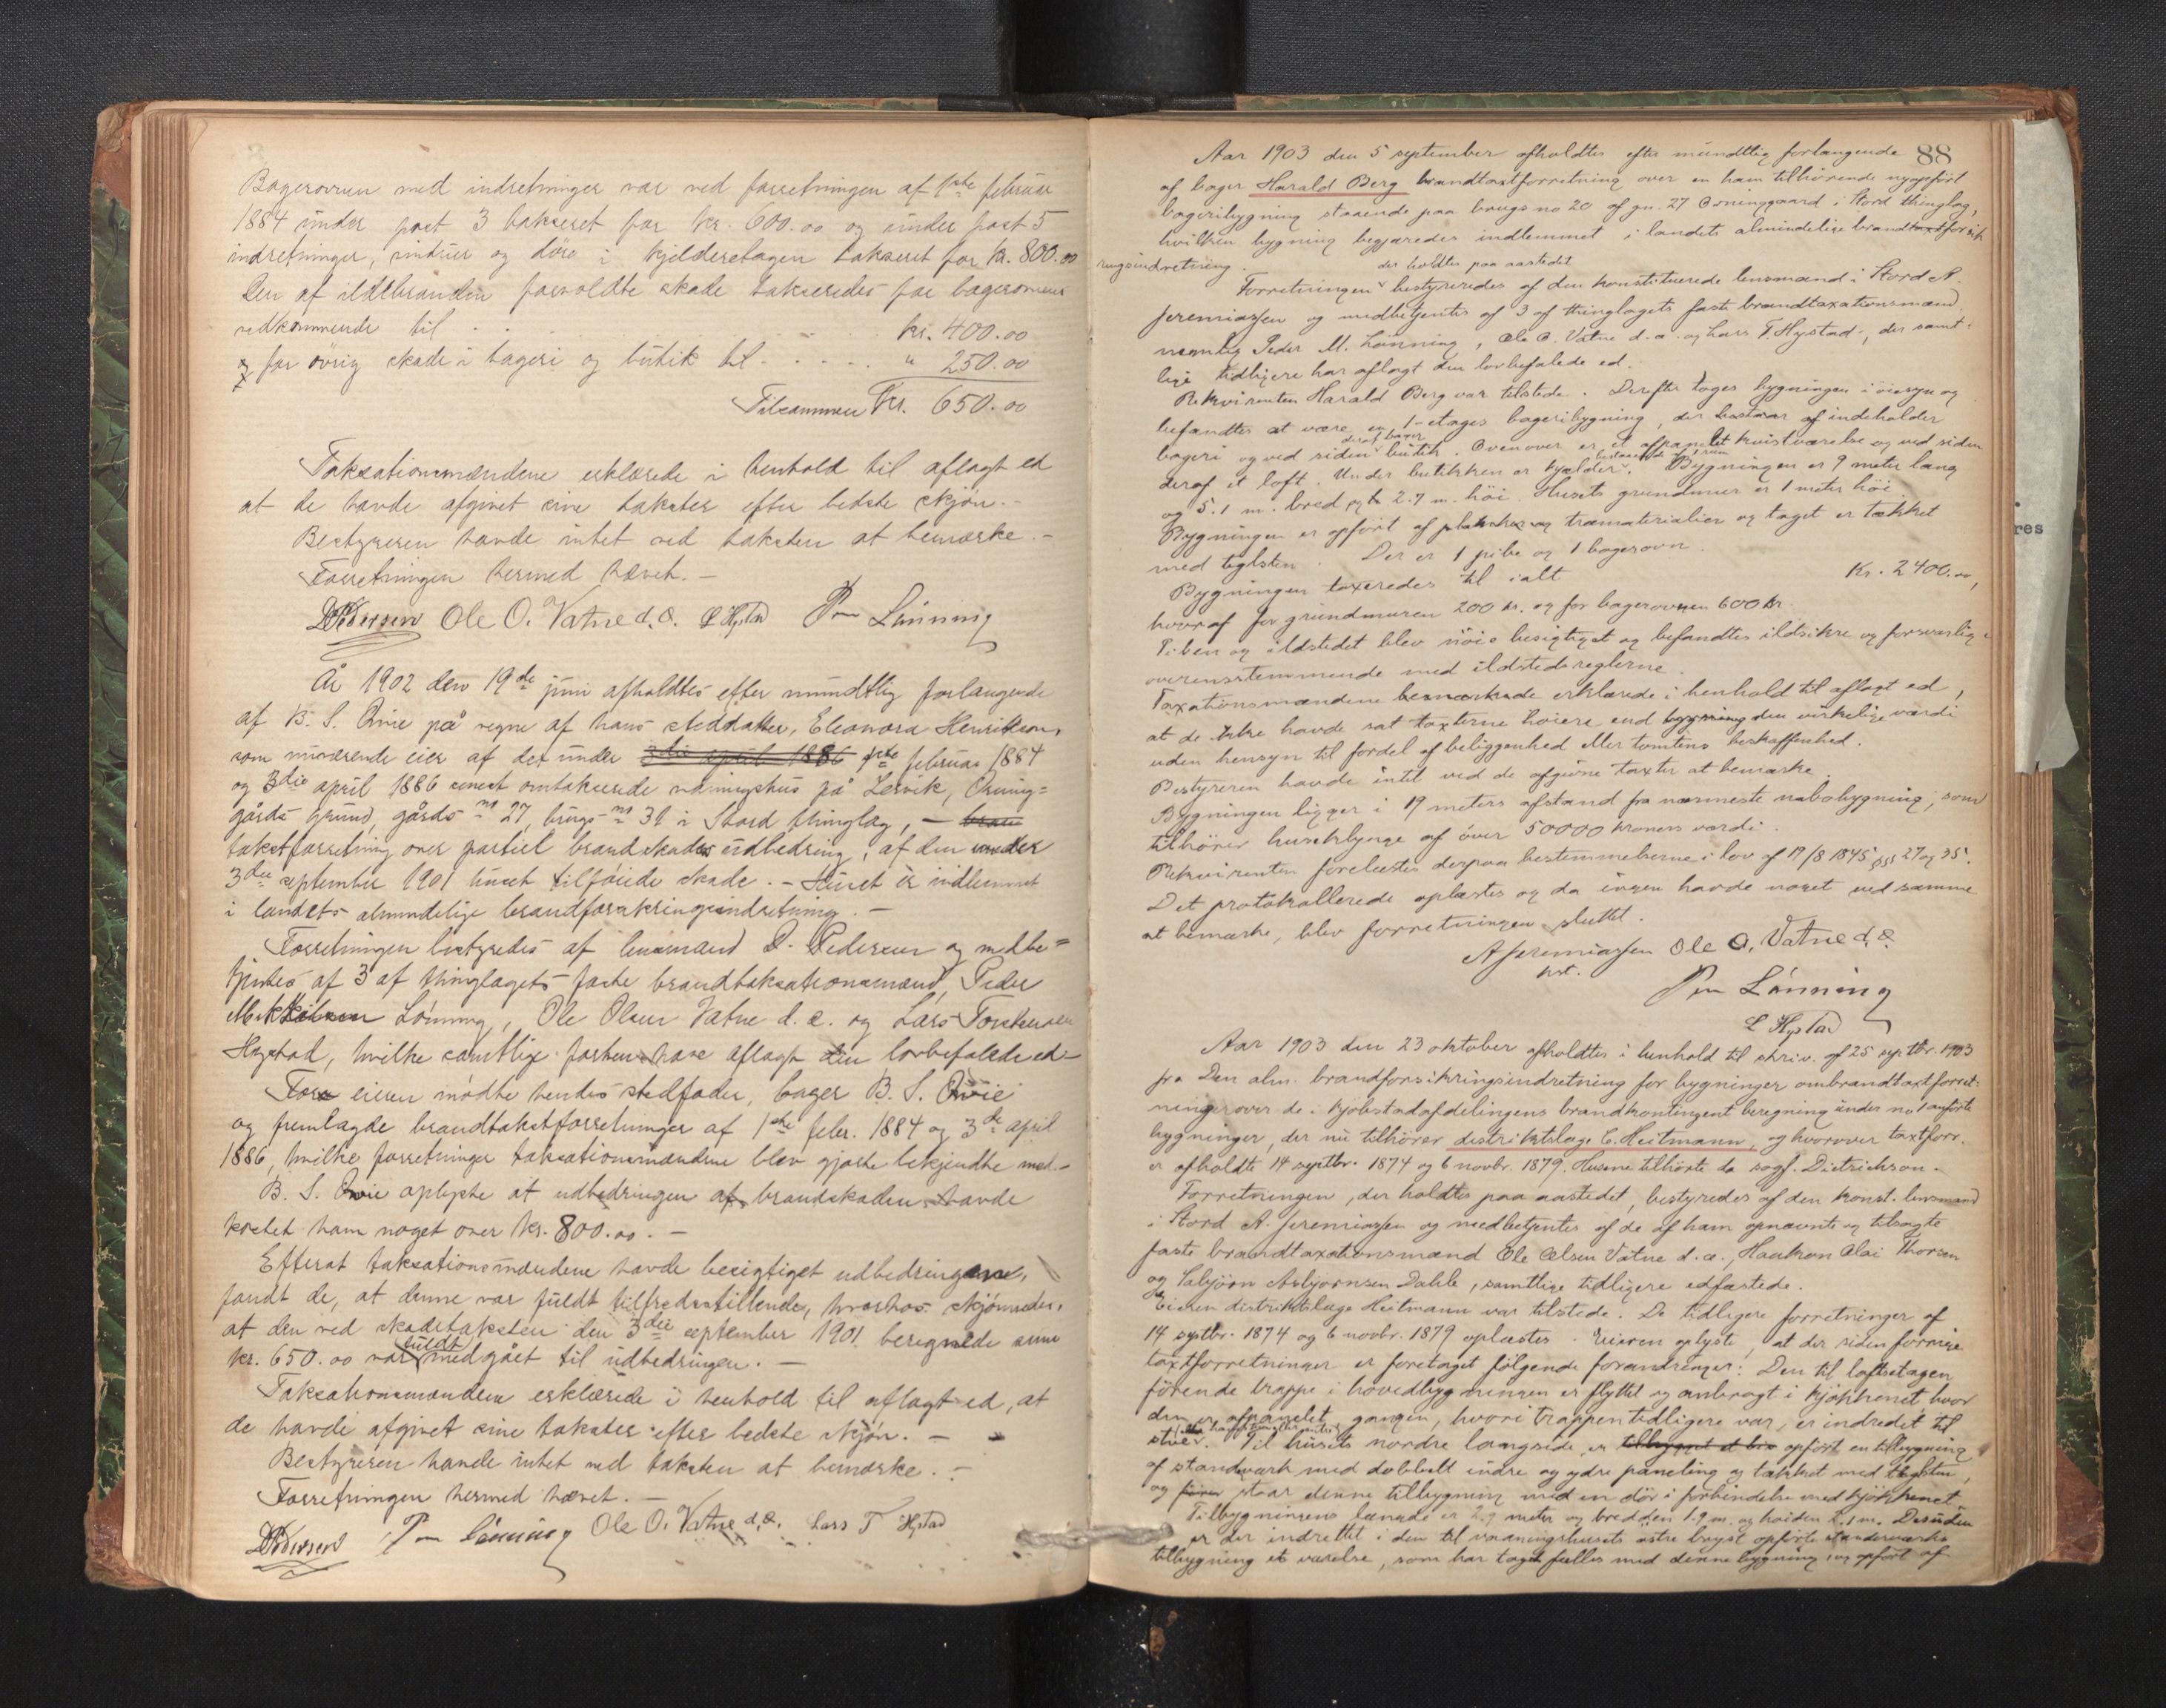 Bagerovnen med indretninger var ved forretningen af 1ste februar
1884 under post 3 takseret for kr. 600.00 og under post 5
indretninger, vinduer og döre i kjelderetagen takseret for kr. 800.00
Den af ildebranden forvoldte skade takseredes for bagerovnens
vedkommende til kr. 400.00
og for övrig skade i bageri og butik til " 250.00
Tilsammen Kr. 650.00
Taksationsmændene erklærede i henhold til aflagt ed
at de havde afgivet sine takster efter bedste skjön.-
Bestyreren havde intet ved taksten at bemærke.-
Forretningen hermed hævet.-
D Pedersen Ole O. Vatne d. æ. L Hystad P M Lönning
År 1902 den 19de juni afholdtes efter mundtlig forlangende
af B. S. Övie på vegne af hans steddatter, Eleonora Henriksen,
som nuværende eier af det under 3die april 1886 1ste februar 1884
og 3die april 1886 senest omtakserede våningshus på Lervik, Orning=
gårds grund, gårds no 27, brugs no 31 i Stord thinglag, - bran
takstforretning over partiel brandskades udbedring, af den under
3die september 1901 huset tilföiede skade. - Huset er indlemmet
i landets almindelige brandforsikringsindretning. -
Forretningen bestyredes af lensmand D. Pedersen og medbe=
tjentes af 3 af thinglagets faste brandtaksationsmænd, Peder
Mikkelsen Lönning, Ole Olsen Vatne d. æ. og Lars Torstensen
Hystad, hvilke samtlige forhen have aflagt den lovbefalede ed-
For eieren mödte hendes stedfader, bager B. S. Övie
og fremlagde brandtakstforretninger af 1ste febr. 1884 og 3die april
1886, hvilke forretninger taksationsmændene blev gjorte bekjendte med.-
B. S. Övie oplyste at udbedringen af brandskaden havde
kostet ham noget over kr. 800.00. -
Efterat taksationsmændene havde besigtiget udbedringene,
fandt de, at denne var fuldt tilfredsstillende, hvorhos skjönnedes,
at den ved skadetaksten den 3die september 1901 beregnede sum
fuldt
kr. 650.00 var medgået til udbedringen. -
Taksationsmændene erklærede i henhold til aflagt ed, at
de havde afgivet sine takster efter bedste skjön. -
Bestyreren havde intet ved taksten at bemærke. -
Forretningen hermed hævet. -
D Pedersen P M Lönning Ole O. Vatne d. æ. Lars T Hystad
88
Aar 1903 den 5 september afholdtes efter mundtlig forlangende
af bager Harald Berg brandtaxtforretning over en ham tilhörende nyopfört
bageribygning staaende paa brugs no 20 af gn. 27 Orninggaard i Stord thinglag,
hvilken bygning begjæredes indlemmet i landets almindelige brandtaxtforsik
ringsindretning.
der holdtes paa aastedet
Forretningen bestyreredes af den konstituerede lensmand i Stord A.
Jeremiassen og medbetjentes af 3 af thinglagets faste brandtaxationsmænd
nemlig Peder M. Lönning, Ole O. Vatne d. æ. og Lars T. Hystad, der samt-
lige tidligere har aflagt den lovbefalede ed.
Rekvirenten Harald Berg var tilstede. Derefter toges bygningen i öiesyn og
befandtes at være en 1-etages bageribygning, der bestaar af indeholder
bageri og ved siden deraf butik. Ovenover er et afpanelet kvistværelse og ved siden
deraf et loft. Under butikken er kjælder. Bygningen er 9 meter lang
og 5.1 m. bred og 2.7 m. höi. Husets grundmur er 1 meter höi
Bygningen er opfört af planker og træmaterialier og taget er tækket
med teglsten. Der er 1 pibe og 1 bagerovn.
Bygningen taxeredes til ialt Kr. 2400.00,
hvoraf for grundmuren 200 kr. og for bagerovnen 600 kr.
Piben og ildstedet blev nöie besigtiget og befandtes ildsikre og forsvarlig i
overensstemmende med ildstedsreglerne.
Taxationsmændene bemærkede erklærede i henhold til aflagt ed,
at de ikke havde sat taxterne höiere end bygning den virkelige værdi
uden hensyn til fordel af beliggenhed eller tomtens beskaffenhed.
Bestyreren havde intet ved de afgivne taxter at bemærke.
Bygningen ligger i 19 meters afstand fra nærmeste nabobygning, som
tilhörer huseklynge af över 50000 kroners værdi.
Rekvirenten forelæstes derpaa bestemmelserne i lov af 19/8 1845 §§ 27 og 35.
Det protokollerede oplæstes og da ingen havde noget ved samme
at bemærke, blev forretningen sluttet.
A Jeremiassen Ole O. Vatne d. æ.
kst.
P M Lönning
L Hystad
Aar 1903 den 23 oktober afholdtes i henhold til skriv. af 25 septbr. 1903
fra Den alm. brandforsikringsindretning for bygninger ombrandtaxtforret-
ninger over de i kjöbstadafdelingens brandkontingent beregning under no 1 anförte
bygninger, der nu tilhörer distriktslæge C. Heitmann, og hvorover taxtforr.
er afholdt 14 septbr. 1874 og 6 novbr. 1879. Husene tilhörte da sogf. Dietrichson.
Forretningen, der holdtes paa aastedet, bestyredes af den konst. lensmand
i Stord A. Jeremiassen og medbetjentes af de af ham opnævnte og tilsagte
faste brandtaxationsmænd Ole Olsen Vatne d. æ., Haakon Olai Thorsen
og Salbjörn Asbjörnsen Dahle, samtlige tidligere edfæstede.
Eieren distriktslæge Heitmann var tilstede. De tidligere forretninger af
14 septbr. 1874 og 6 novbr. 1879 oplæstes. Eieren oplyste, at der siden forrige
taxtforretninger er foretaget fölgende forandringer: Den til loftsetagen
förende trappe i hovedbygningen er flyttet og anbragt i kjökkenet hvor
den er afpanelet, gangen, hvori trappen tidligere var, er indredet til
stue. Til husets nordre langside er tilbygget et bis opfört en tilbygning
af standværk med dobbelt indre og ydre paneling og tækket med teglsten,
og staar denne tilbygning med en dör i forbindelse med kjökkenet
Tilbygningens længde er 2.9 meter og bredden 1.9 m. og höiden 2.1 m. Desuden
er der indrettet i den til vaaningshusets östre bryst opförte standværks
tilbygning et værelse, som har taget fælles med denne bygning, og opfört af
res